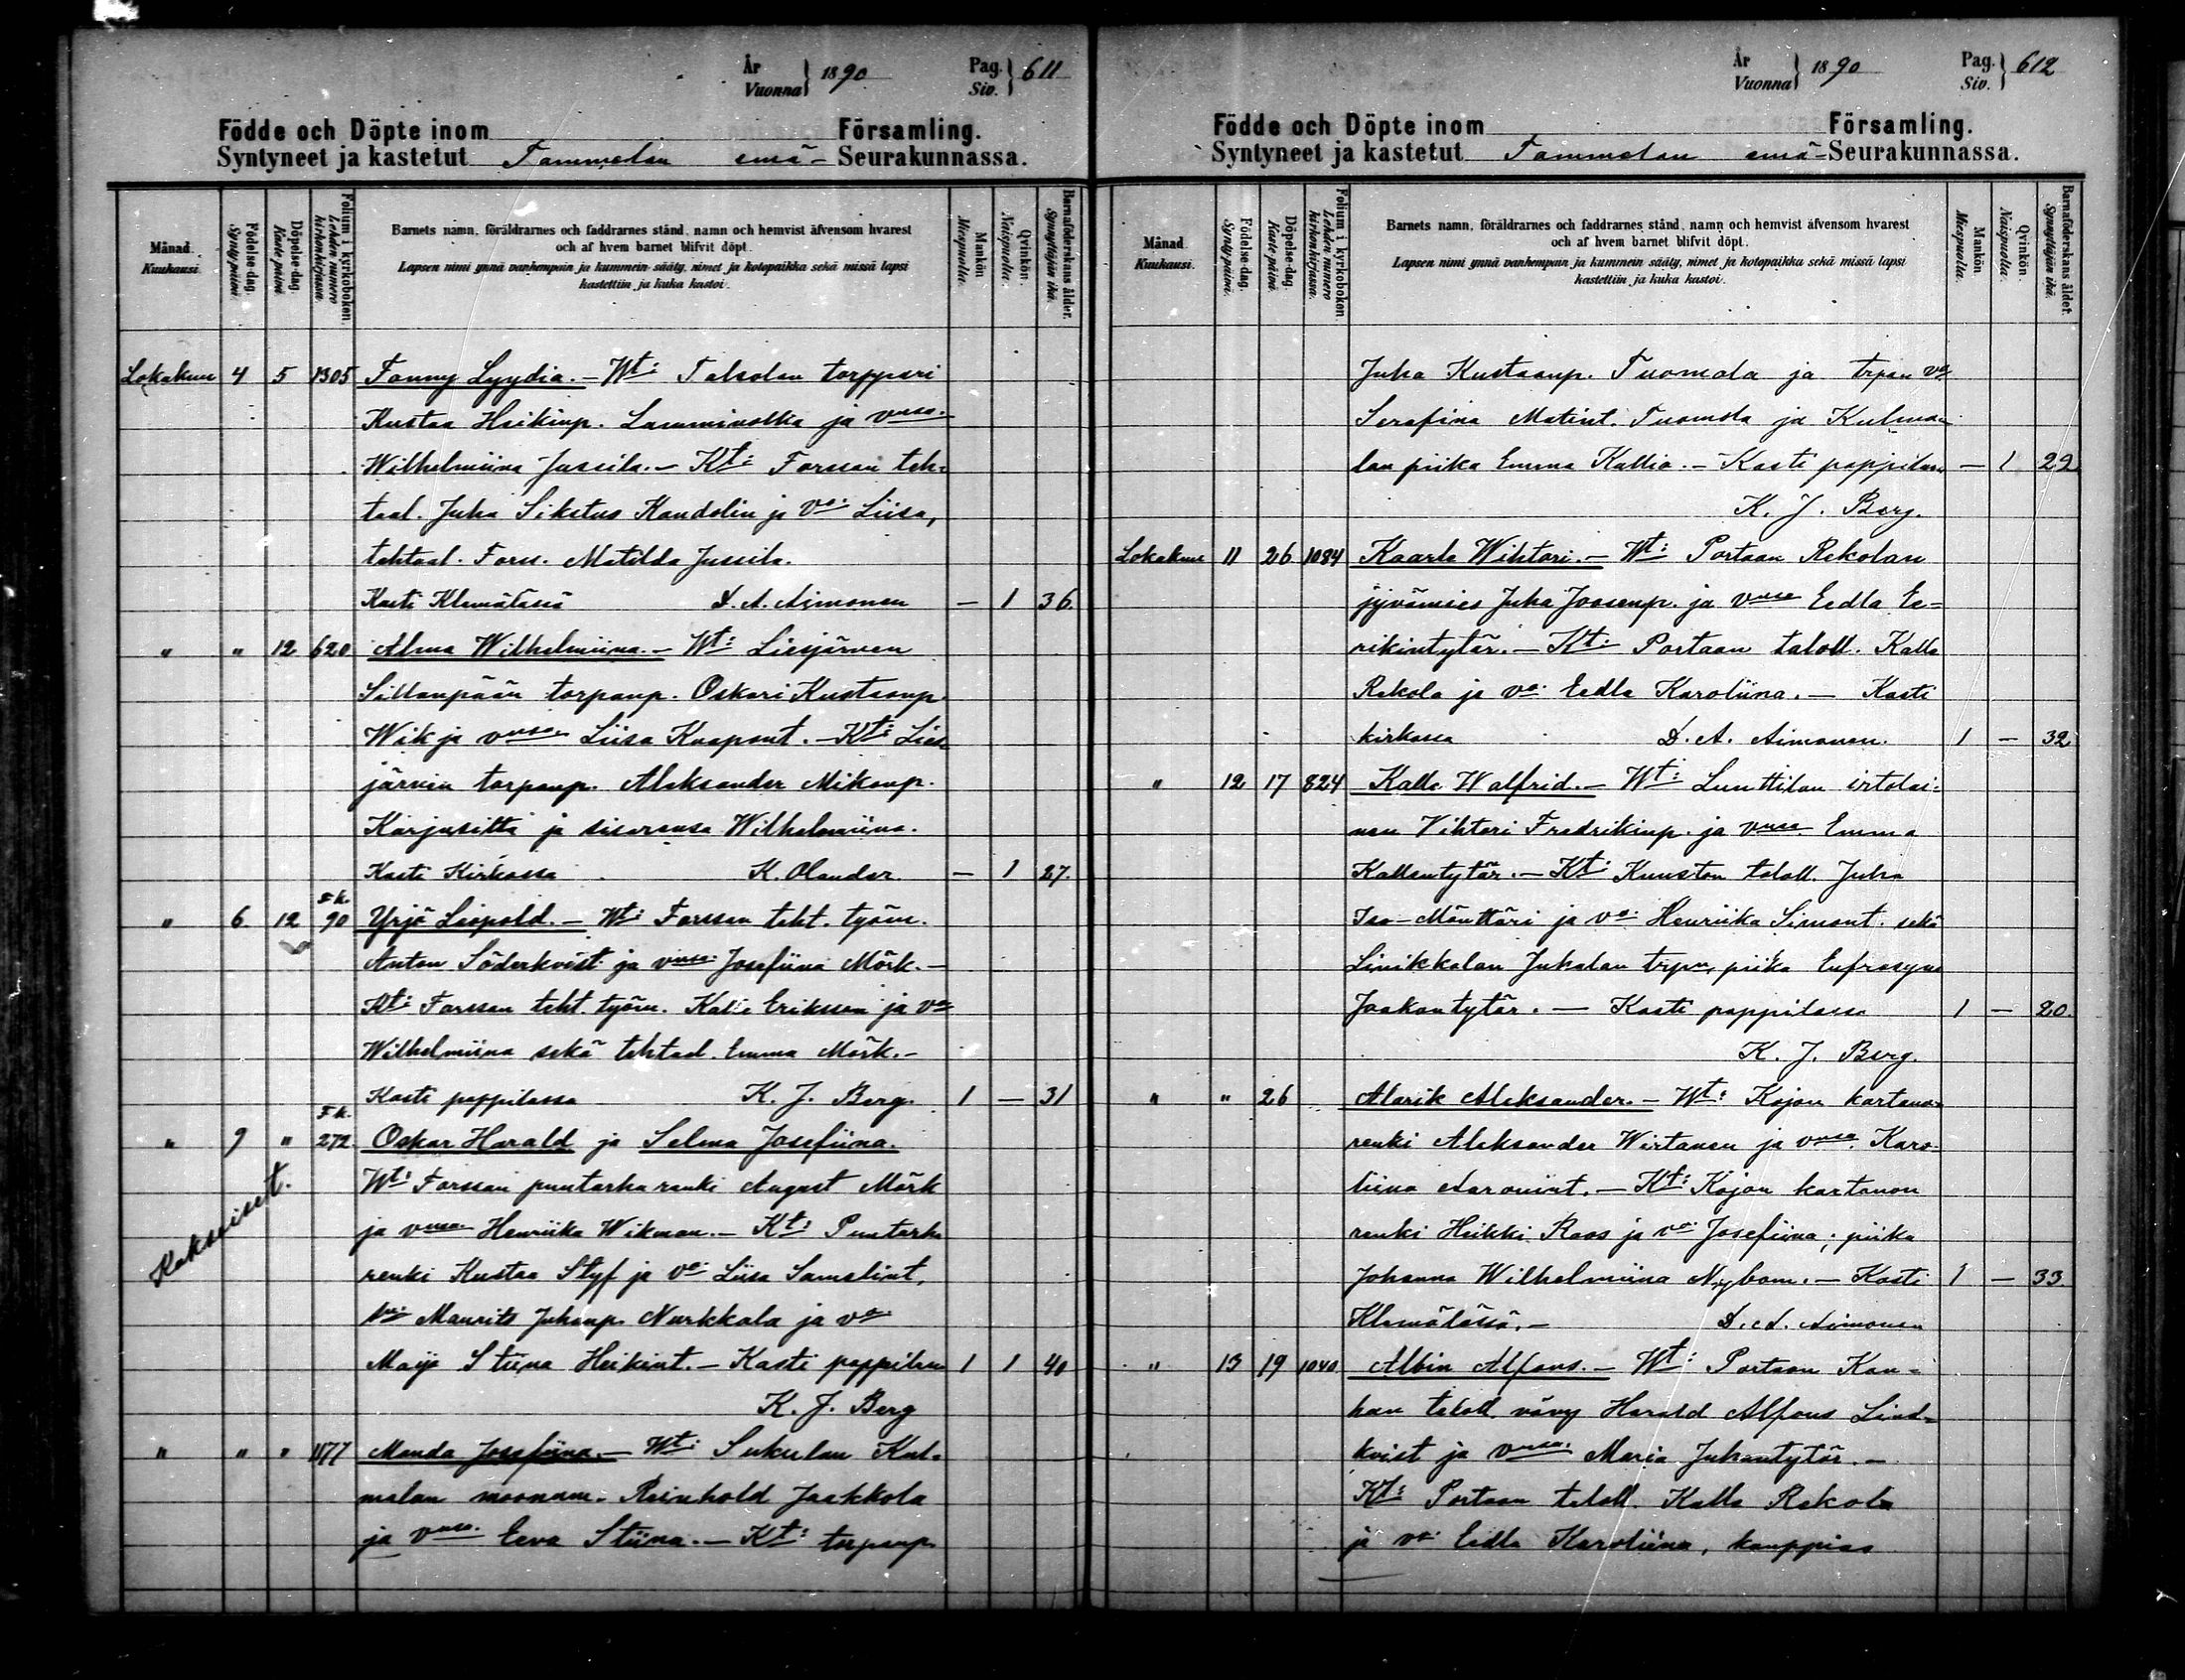 År
Vuonna } 1890
Pag.
Siv. } 611
Födde och Döpte inom Församling.
Syntyneet ja kastetut Tammelan emä- Seurakunnassa.
Månad. Kuukausi.
Födelse-dag. Synty-päivä.
Döpelse-dag. Kaste-päivä.
Folium i kyrkoboken. Lehden numero kirkonkirjassa.
Barnets namn, föräldrarnes och faddrarnes stånd, namn och hemvist äfvensom hvarest
och af hvem barnet blifvit döpt.
Lapsen nimi ynnä vanhempain ja kummein sääty, nimet ja kotopaikka sekä missä lapsi
kastettiin ja kuka kastoi.
Mankön. Miespuolia.
Qvinkön. Naispuolia.
Barnaföderskans ålder. Synnyttäjän ikä.
Lokakuu 4 5 1305 Fanny Lyydia. - Wt: Talsolan torppari
Kustaa Heikinp. Lamminotka ja vmsa.
Wilhelmiina Jussila. - Kt: Forssan teh-
taal. Juha Sikstus Kandolin ja va: Liisa,
tehtaal. Forss. Matilda Jussila.
Kasti Klemälässä D. A. Aimonen - 1 36.
" " 12 620 Alma Wilhelmiina. - Wt: Liesjärven
Sillanpään torpanp. Oskari Kustaanp.
Wik ja vmsa Liisa Kaapont. - Kt: Lies
järven torpanp. Aleksander Mikonp.
Karjusitta ja sisarensa Wilhelmiina.
Kasti Kirkossa K. Olander. - 1 27.
" 6. 12 Fk. 90 Yrjö Leopold. - Wt: Forssan teht. työm.
Anton Söderkvist ja vmsa: Josefiina Mörk. -
Kt: Forssan teht. työm. Kalle Eriksson ja va
Wilhelmiina sekä tehtaal. Emma Mörk. -
Kasti pappilassa K. J. Berg. 1 - 31
" 9 " Fk. 272. Oskar Harald ja Selma Josefiina.
Kaksoiset.
Wt: Forssan puutarha renki August Mörk
ja vmsa Henriika Wikman. - Kt: Puutarha
renki Kustaa Styf ja va: Liisa Samelint,
Maurits Juhanp. Nurkkala ja va
Maija Stiina Heikint. - Kasti pappilassa 1 1 40
K. J. Berg
" " " 1177 Manda Josefiina. - Wt: Sukulan Kul-
malan muonam. Reinhold Jaakkola
ja vmsa. Eeva Stiina. - Kt: torpanp.
År
Vuonna } 1890
Pag.
Siv. } 612
Födde och Döpte inom Församling.
Syntyneet ja kastetut Tammelan emä- Seurakunnassa.
Månad. Kuukausi.
Födelse-dag. Synty-päivä.
Döpelse-dag. Kaste-päivä.
Folium i kyrkoboken. Lehden numero kirkonkirjassa.
Barnets namn, föräldrarnes och faddrarnes stånd, namn och hemvist äfvensom hvarest
och af hvem barnet blifvit döpt.
Lapsen nimi ynnä vanhempain ja kummein sääty, nimet ja kotopaikka sekä missä lapsi
kastettiin ja kuka kastoi.
Mankön. Miespuolia.
Qvinkön. Naispuolia.
Barnaföderskans ålder. Synnyttäjän ikä.
Juha Kustaanp. Tuomola ja trpan va
Serafina Matint. Tuomola ja Kulma
lan piika Emma Kallio. - Kasti pappilassa - 1 29
K. J. Berg.
Lokakuu 11 26 1084 Kaarlo Wihtori. - Wt: Portaan Rekolan
jyvämies Juha Joosenp. ja vmsa Eedla Ee-
rikintytär. - Kt: Portaan taloll. Kalle
Rekola ja va: Eedla Karoliina. - Kasti
kirkossa D. A. Aimonen. 1 - 32
" 12 17 824 Kalle Walfrid. - Wt: Lunttilan irtolai-
nen Vihtori Fredrikinp. ja vmsa Emma
Kallentytär. - Kt: Kuuston taloll. Juha
Iso-Mänttäri ja va: Henriika Simont. sekä
Linikkalan Jukolan trpn. piika Eufrosyna
Jaakontytär. - Kasti pappilassa 1 - 20.
K. J. Berg.
" " 26 Alarik Aleksander. - Wt: Kojon kartanon
renki Aleksander Wirtanen ja vmsa Karo-
liina Aaronint. - Kt: Kojon kartanon
renki Heikki Roos ja va: Josefiina; piika
Johanna Wilhelmiina Nybom. - Kasti 1 - 33
Klemälässä. - D. A. Aimonen
" 13 19 1040. Albin Alfons. - Wt: Portaan Kan-
han taloll. vävy Harald Alfons Lind-
kvist ja vmsa: Maria Juhantytär. -
Kt: Portaan taloll. Kalle Rekola
ja va: Eedla Karoliina, kauppias